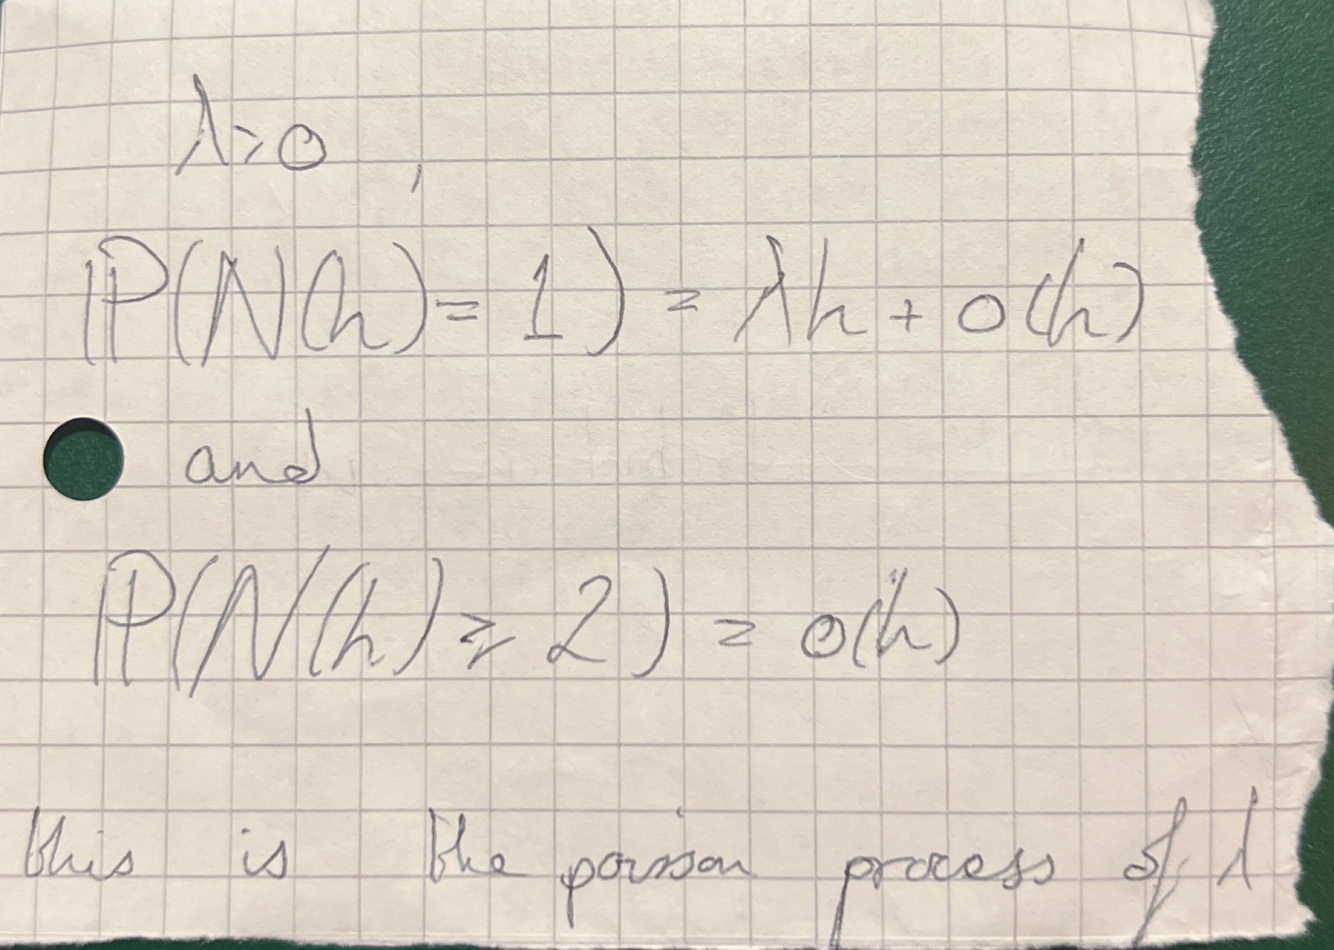 λ>0 ,
P(N(h)=1) = λh + o(h)
and
P(N(h) ≥ 2) = o(h)
this is the poisson process of λ